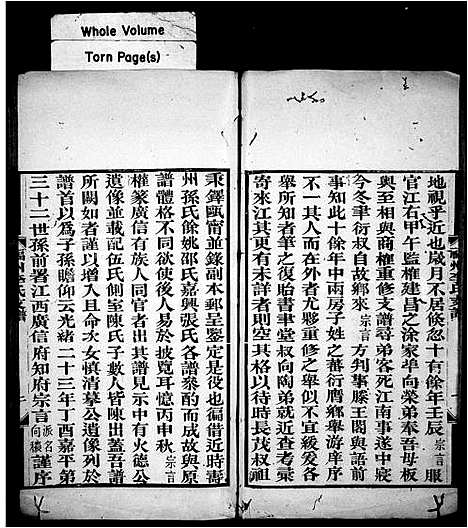 Whole Volume
Torn Page(s)
地視乎近也歲月不居倏忽十有餘年壬辰宗言服
官江右甲午監榷建昌之涂家阜向榮弟奉吾母板
輿至相與商榷重修支譜尋弟客死江南事遂中寢
今冬聿衍叔自故鄉來宗言方判事滕王閣與語前
事知此十餘年中兩房子姓之蕃衍膺鄉舉游庠序
不一其人而在外者尤夥重修之舉似不宜緩爰各
舉所知者貽書畢堂叔向陶弟就近采訪續查考彙
寄來江其更有未詳者則空其格以待時長茂叔祖
秉鐸甌甯並錄副本郵呈鑒定是役也徧借近時壽
州孫氏餘姚邵氏嘉興張氏各譜參酌而成故與原
譜體格不同欲使後人易於披覽耳憶丙申秋宗言
權篆廣信有族人同官者出其譜見示中有火德公
遺像並載配伍氏側室陳氏子數人皆陳出蓋吾譜
所闕如者謹以增入且命次女慎清摹公遺像列於
譜首以為子孫瞻仰云光緒二十三年丁酉嘉平第
三十二世孫前署江西廣信府知府宗言派名向樓謹序